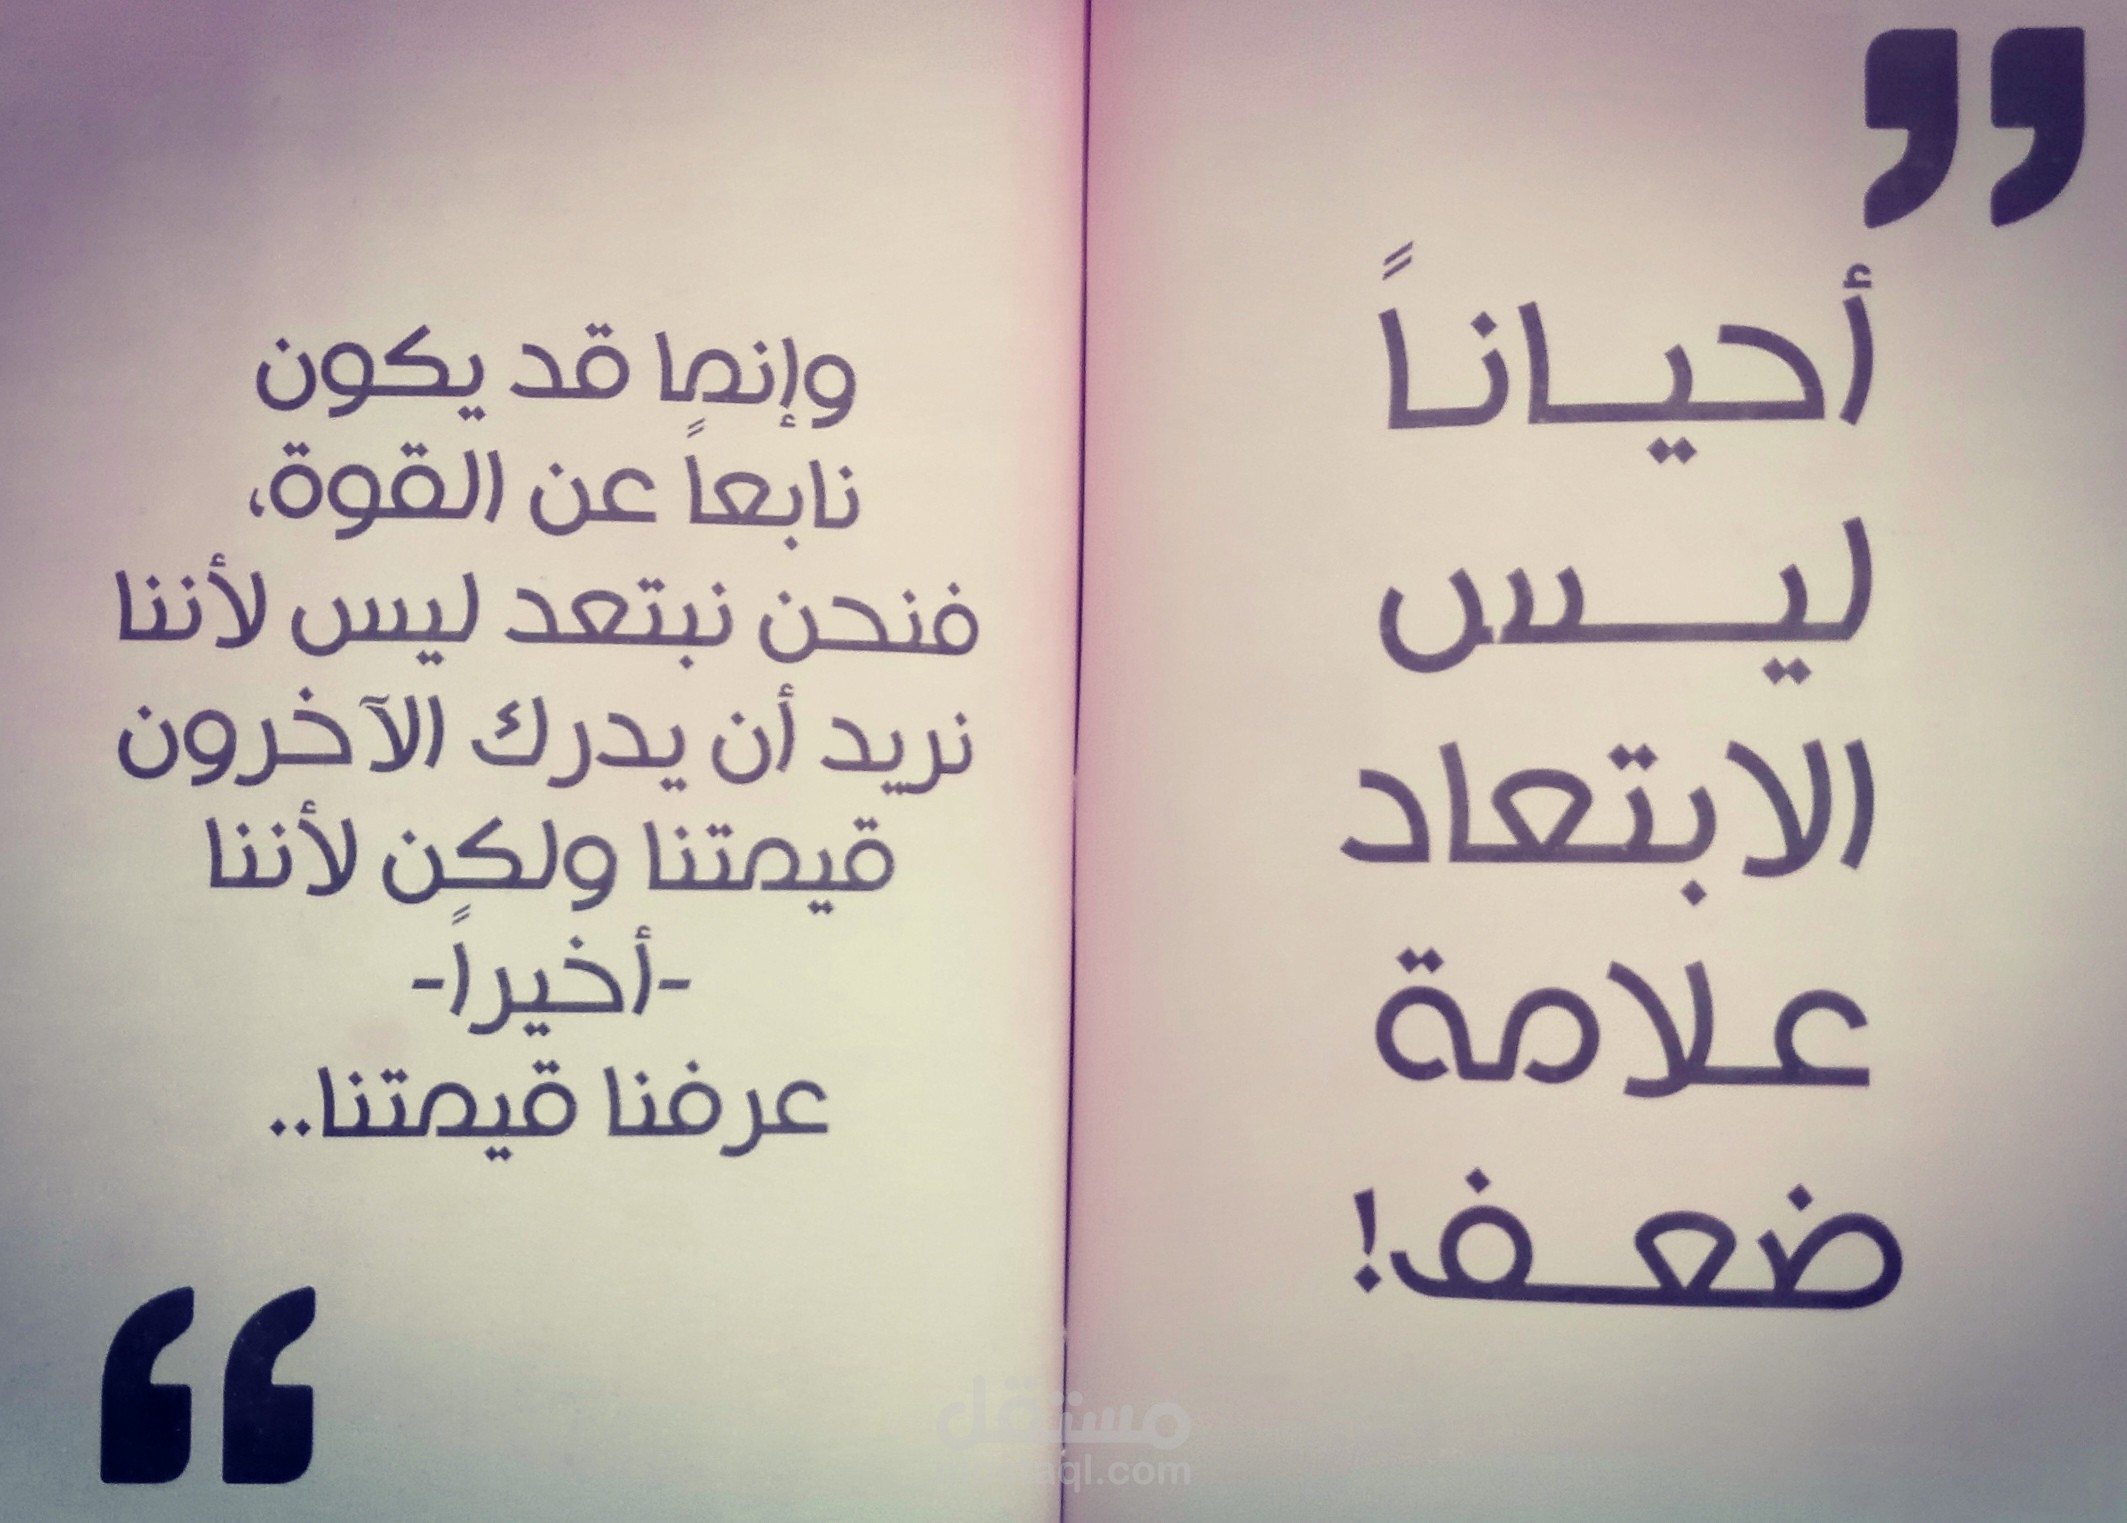 ”
أحياناً
ليس
الابتعاد
علامة
ضعف!
وإنما قد يكون
نابعاً عن القوة،
فنحن نبتعد ليس لأننا
نريد أن يدرك الآخرون
قيمتنا ولكن لأننا
-أخيراً-
عرفنا قيمتنا..
“
مستقل
aql.com